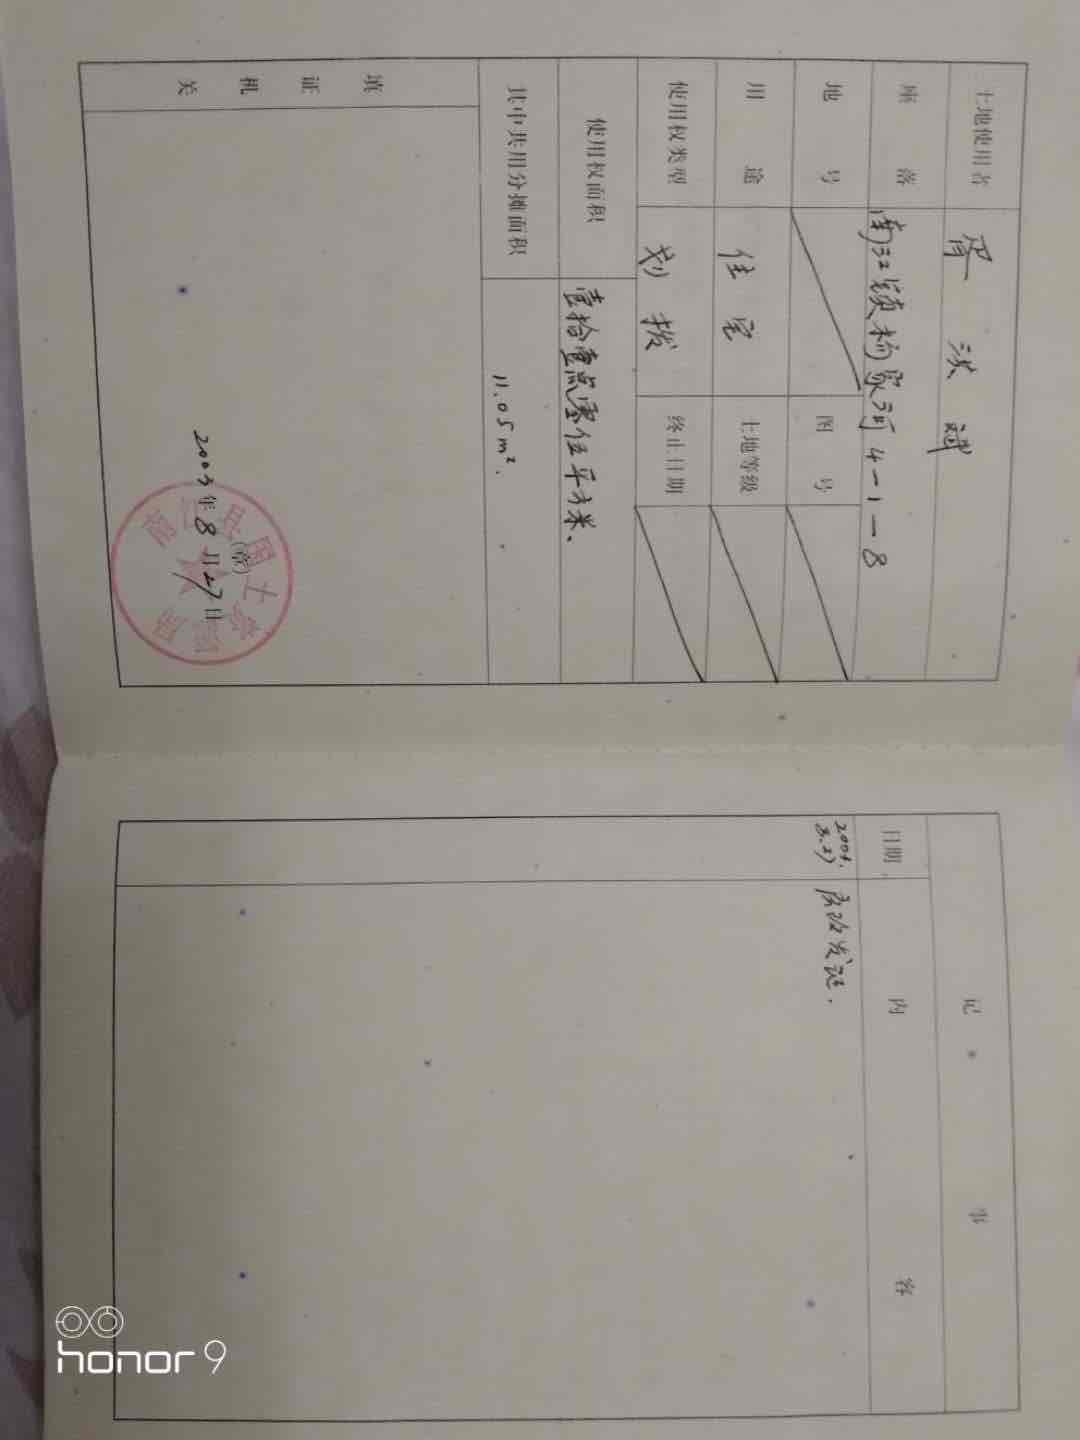 土地使用者
座落 南江镇杨家河4-1-8
地号
图号
用途 住宅
土地等级
使用权类型 划拨
终止日期
使用权面积 壹拾壹点零伍平方米.
其中共用分摊面积 11.05m².
填证机关
(章)
2003年8月27日
南江县国土资源局
记事
日期 内容
房改发证.
honor 9